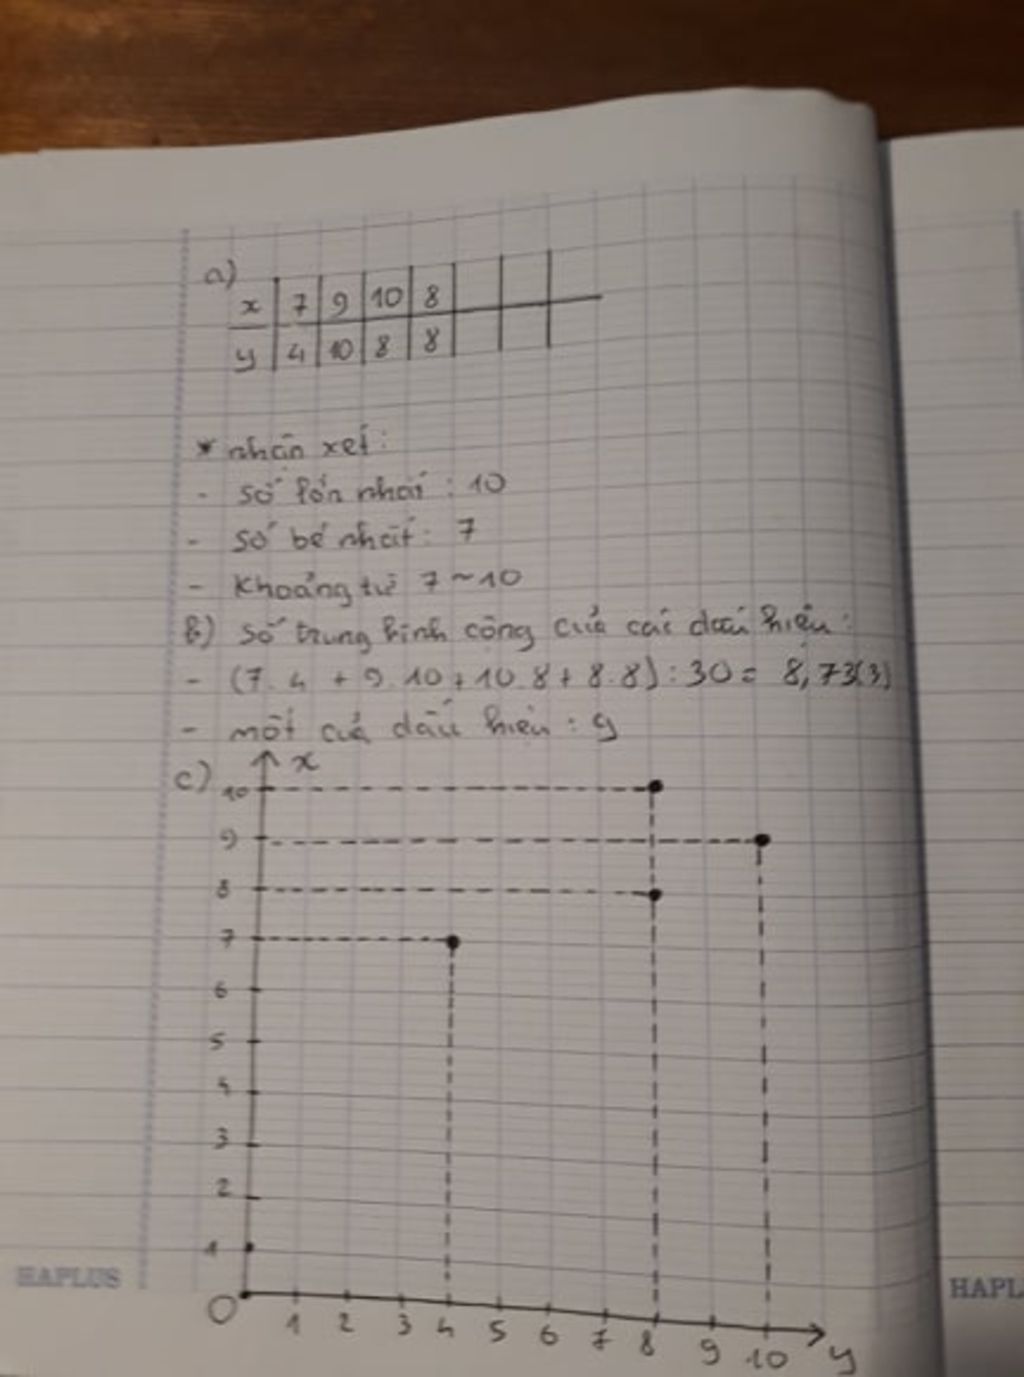 a)
x 7 9 10 8
y 4 10 8 8
* nhận xét:
- số lớn nhất: 10
- số bé nhất: 7
- Khoảng từ 7 ~ 10
b) số trung bình cộng của các dấu hiệu:
- (7.4 + 9.10 + 10.8 + 8.8) : 30 = 8,73(3)
- mốt của dấu hiệu: 9
c) x
10
9
8
7
6
5
4
3
2
1
O 1 2 3 4 5 6 7 8 9 10 y
HAPLUS
HAPL